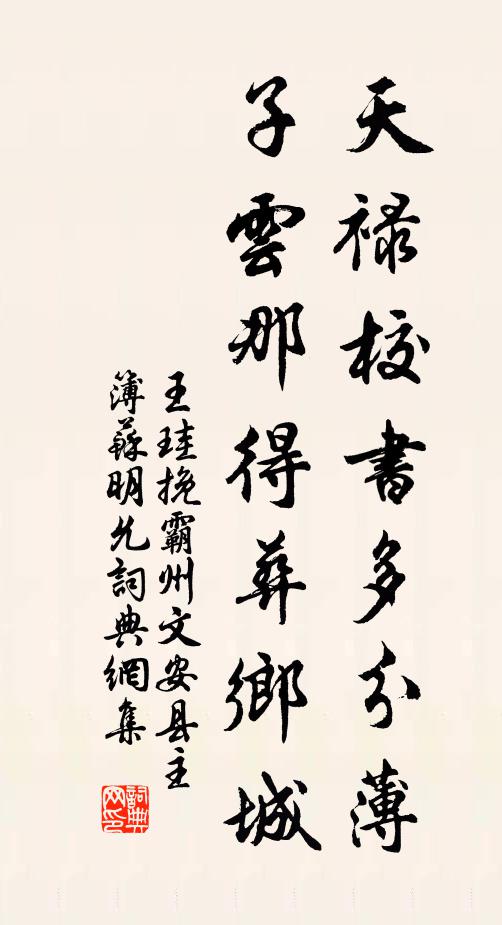 天禄校書多分薄
子雲那得葬鄉城
王珪挽霸州文安县主
簿蘇明允詞典網集
詞典網印